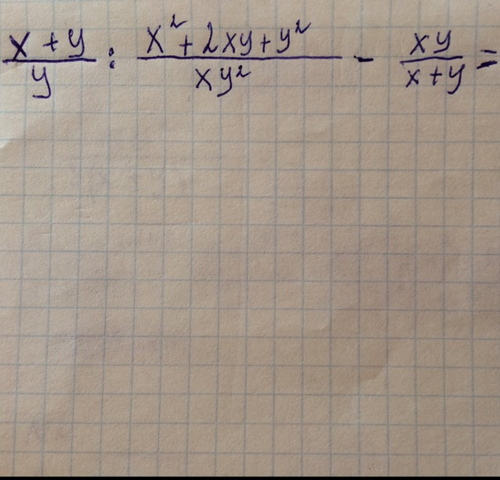 (x+y)/y : (x²+2xy+y²)/(xy²) - (xy)/(x+y) =